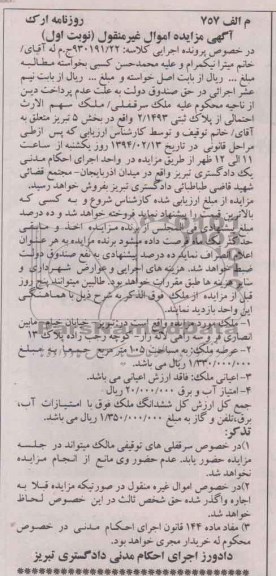 م الف ۷۵۷ روزنامه ارک
آگهی مزایده اموال غیرمنقول (نوبت اول)
در خصوص پرونده اجرایی کلاسه: ۹۳۰۱۹۱/۲۲ج.م له آقای/
خانم میترا نیکمرام و علیه محمدحسن کسی بخواسته مطالبه
مبلغ ... ریال از بابت اصل خواسته و مبلغ ... ریال از بابت نیم
عشر اجرائی در حق صندوق دولت به علت عدم پرداخت دین
از ناحیه محکوم علیه ملک سرقفلی/ ملک سهم الارث
احتمالی از پلاک ثبتی ۲/۱۴۹۳ واقع در بخش ۵ تبریز متعلق به
آقای/ خانم توقیف و توسط کارشناس ارزیابی که پس ازطی
مراحل قانونی در تاریخ ۱۳۹۴/۰۲/۱۳ روز یکشنبه از ساعت
۱۱ الی ۱۲ ظهر از طریق مزایده در واحد اجرای احکام مدنی
یک دادگستری تبریز واقع در میدان اذربایجان- مجتمع قضائی
شهید قاضی طباطبائی دادگستری تبریز بفروش خواهد رسید.
مزایده از مبلغ ارزیابی شده کارشناس شروع و به کسی که
بالاترین قیمت را پیشنهاد نماید فروخته خواهد شد و ده درصد
مبلغ پیشنهادی فی المجلس از برنده مزایده اخذ و مابقی
حداکثر یکماه فرصت داده میشود برنده مزایده به هر عنوان
اعلام انصراف نماید ده درصد پیشنهادی به نفع صندوق دولت
ضبط خواهد شد. هزینه های اجرایی و عوارض شهرداری و
سایر هزینه ها طبق مقررات خواهد بود. طالبین میتوانند پنج روز
قبل از مزایده از ملک فوق الذکر به شرح ذیل با هماهنگی
این واحد بازدید نمایند.
۱- ملک واقع در تبریز- خیابان مابین
انصاری فر و سه راهی لاله زار- کوچه رجب زاده پلاک ۱۳
۲- عرصه ملک: به مساحت ۱۰۵ متر مربع جمعا به مبلغ
۱/۳۳۰/۰۰۰/۰۰۰ ریال می باشد.
۳- اعیانی ملک: فاقد ارزش اعیانی می باشد.
۴- امتیاز آب و برق ۲۰/۰۰۰/۰۰۰ ریال
جمع کل ارزش کل ششدانگ ملک فوق با امتیازات آب،
برق،تلفن و گاز به مبلغ ۱/۳۵۰/۰۰۰/۰۰۰ ریال می باشد.
تذکر:
۱)در خصوص سرقفلی های توقیفی مالک میتواند در جلسه
مزایده حضور یابد. عدم حضور وی مانع از انجام مزایده
نخواهد شد.
۲)در خصوص اموال غیره منقول در صورتیکه مزایده قبلا به
اجاره واگذار شده حق شخص ثالث در این خصوص لحاظ
خواهد شد.
۳) مفاد ماده ۱۴۴ قانون اجرای احکام مدنی در خصوص
محکوم له خریدار مجری خواهد بود.
دادورز اجرای احکام مدنی دادگستری تبریز